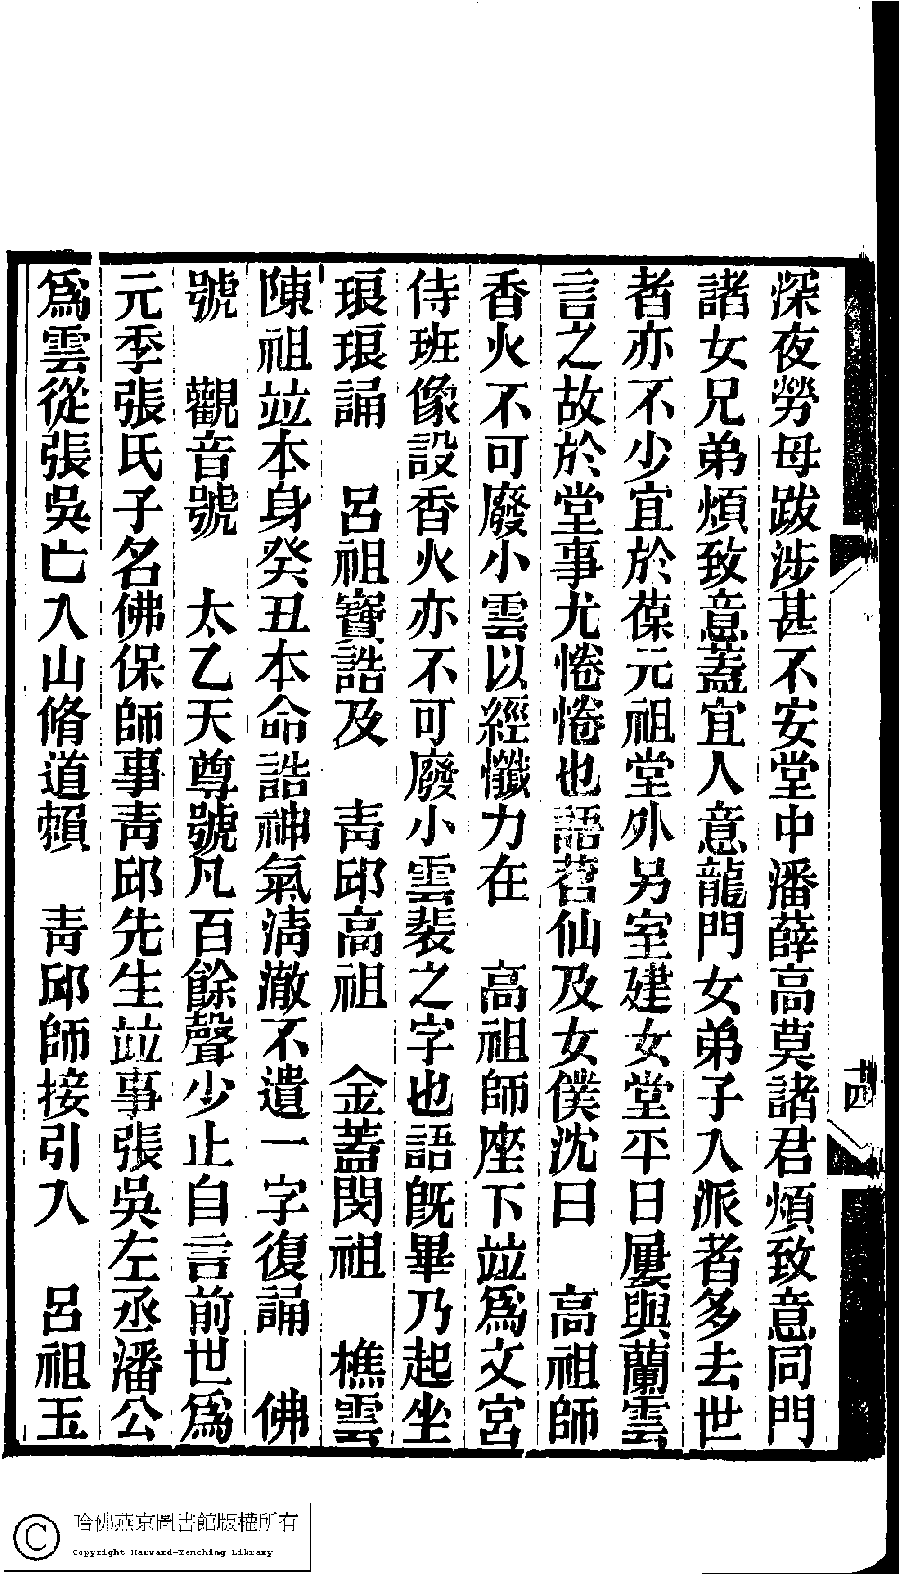 深夜勞母跋涉甚不安堂中潘薛高莫諸君煩致意同門
諸女兄弟煩致意蓋宜人意龍門女弟子入派者多去世
者亦不少宜於葆元祖堂外另室建女堂平日屢與蘭雲
言之故於堂事尤惓惓也語莙仙及女僕沈曰　高祖師
香火不可廢小雲以經懺力在　高祖師座下竝爲文宮
侍班像設香火亦不可廢小雲裴之字也語旣畢乃起坐
琅琅誦　呂祖寶誥及　靑邱高祖　金蓋閔祖　樵雲
陳祖竝本身癸丑本命誥神氣淸澈不遺一字復誦　佛
號　觀音號　太乙天尊號凡百餘聲少止自言前世爲
元季張氏子名佛保師事靑邱先生竝事張吳左丞潘公
爲雲從張吳亡入山脩道賴　靑邱師接引入　呂祖玉
十四
哈佛燕京圖書館版權所有
Copyright Harvard-Yenching Library